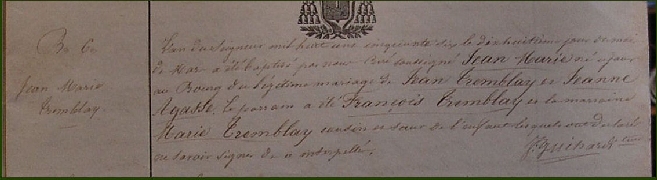 B. 60
Jean Marie
Tremblay.
L'an du Seigneur mil huit cent cinquante six le dixhuitième jour du mois
de Mars a été Baptisé par nous Curé soussigné Jean Marie né
au Bourg du légitime mariage de Jean Tremblay et Jeanne
Agasse. Le parrain a été François Tremblay et la marraine
Marie Tremblay cousin et sœur de l'enfant lesquels ont déclaré
ne savoir signer de ce interpellés.
J. Guichard